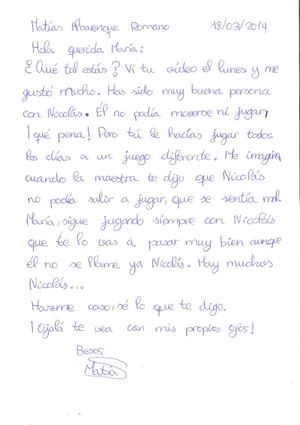 Matías Abarenque Romano 18/03/2014
Hola querida María:
¿Qué tal estás? Vi tu vídeo el lunes y me
gustó mucho. Has sido muy buena persona
con Nicolás. Él no podía moverse ni jugar,
¡qué pena! Pero tú le hacías jugar todos
los días a un juego diferente. Me imagino
cuando la maestra te dijo que Nicolás
no podía salir a jugar, que se sentía mal.
María, sigue jugando siempre con Nicolás
que te lo vas a pasar muy bien aunque
él no se llame ya Nicolás. Hay muchos
Nicolás...
Hazme caso, sé lo que te digo.
¡Ojalá te vea con mis propios ojos!
Besos
Matías